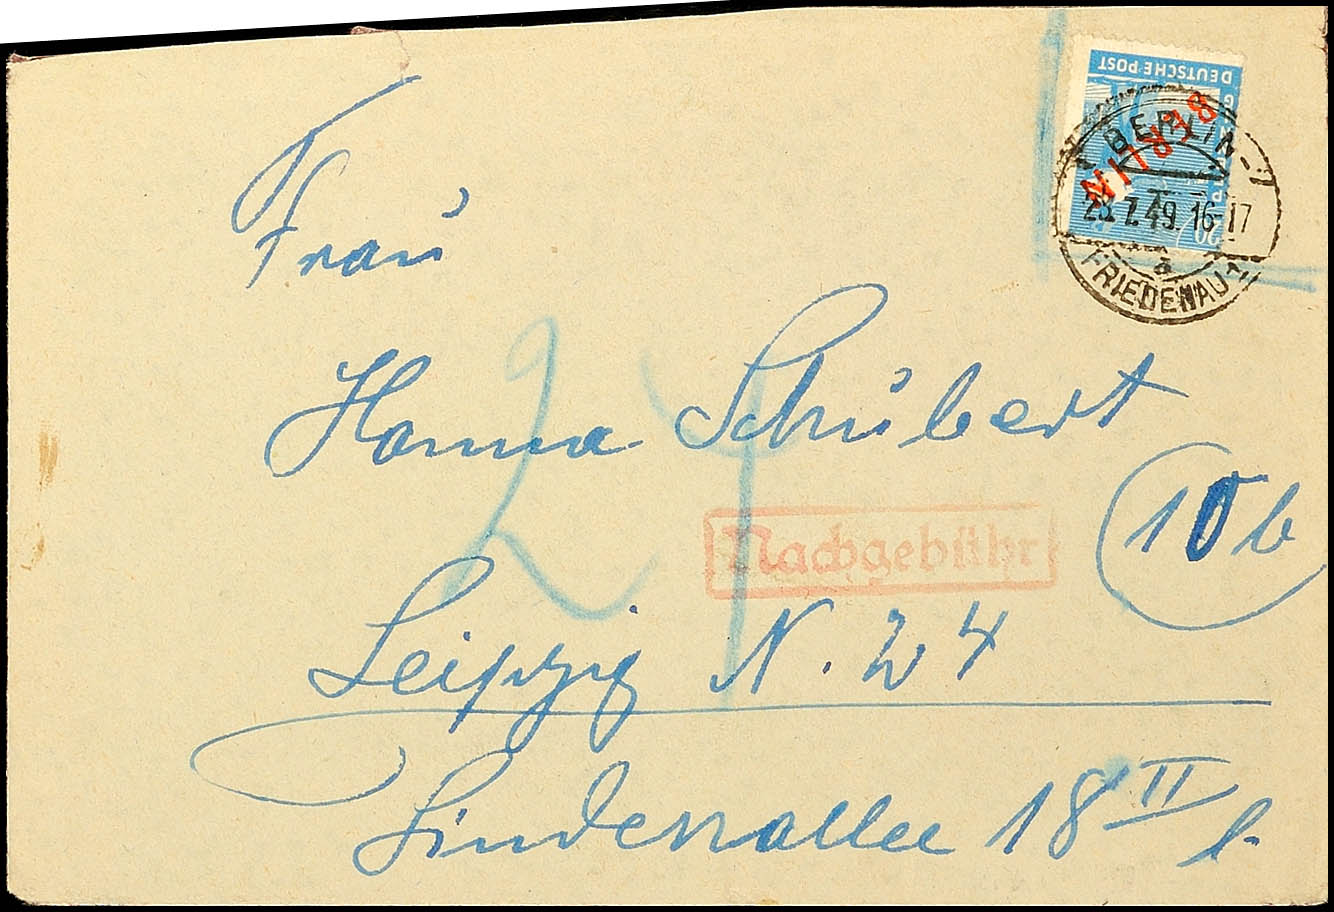 DEUTSCHE POST
BERLIN
20
BERLIN-
7.49.16-17
a
FRIEDENAU 1
Frau
Hanna Schubert
24
Nachgebühr
10b
Leipzig N. 24
Lindenallee 18 II l.